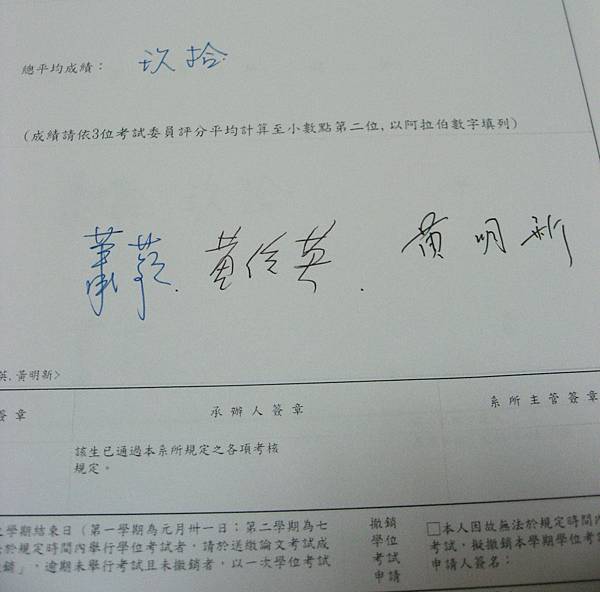 總平均成績： 玖拾
（成績請依3位考試委員評分平均計算至小數點第二位,以阿拉伯數字填列）
黃俊英 . 黃明新
英,黃明新>
簽章 承辦人簽章 系所主管簽章
該生已通過本系所規定之各項考核
規定。
學期結束日（第一學期為元月卅一日；第二學期為七
於規定時間內舉行學位考試者，請於送繳論文考試成
銷」，逾期未舉行考試且未撤銷者，以一次學位考試
撤銷
學位
考試
申請
□本人因故無法於規定時間內
考試，擬撤銷本學期學位考試
申請人簽名：